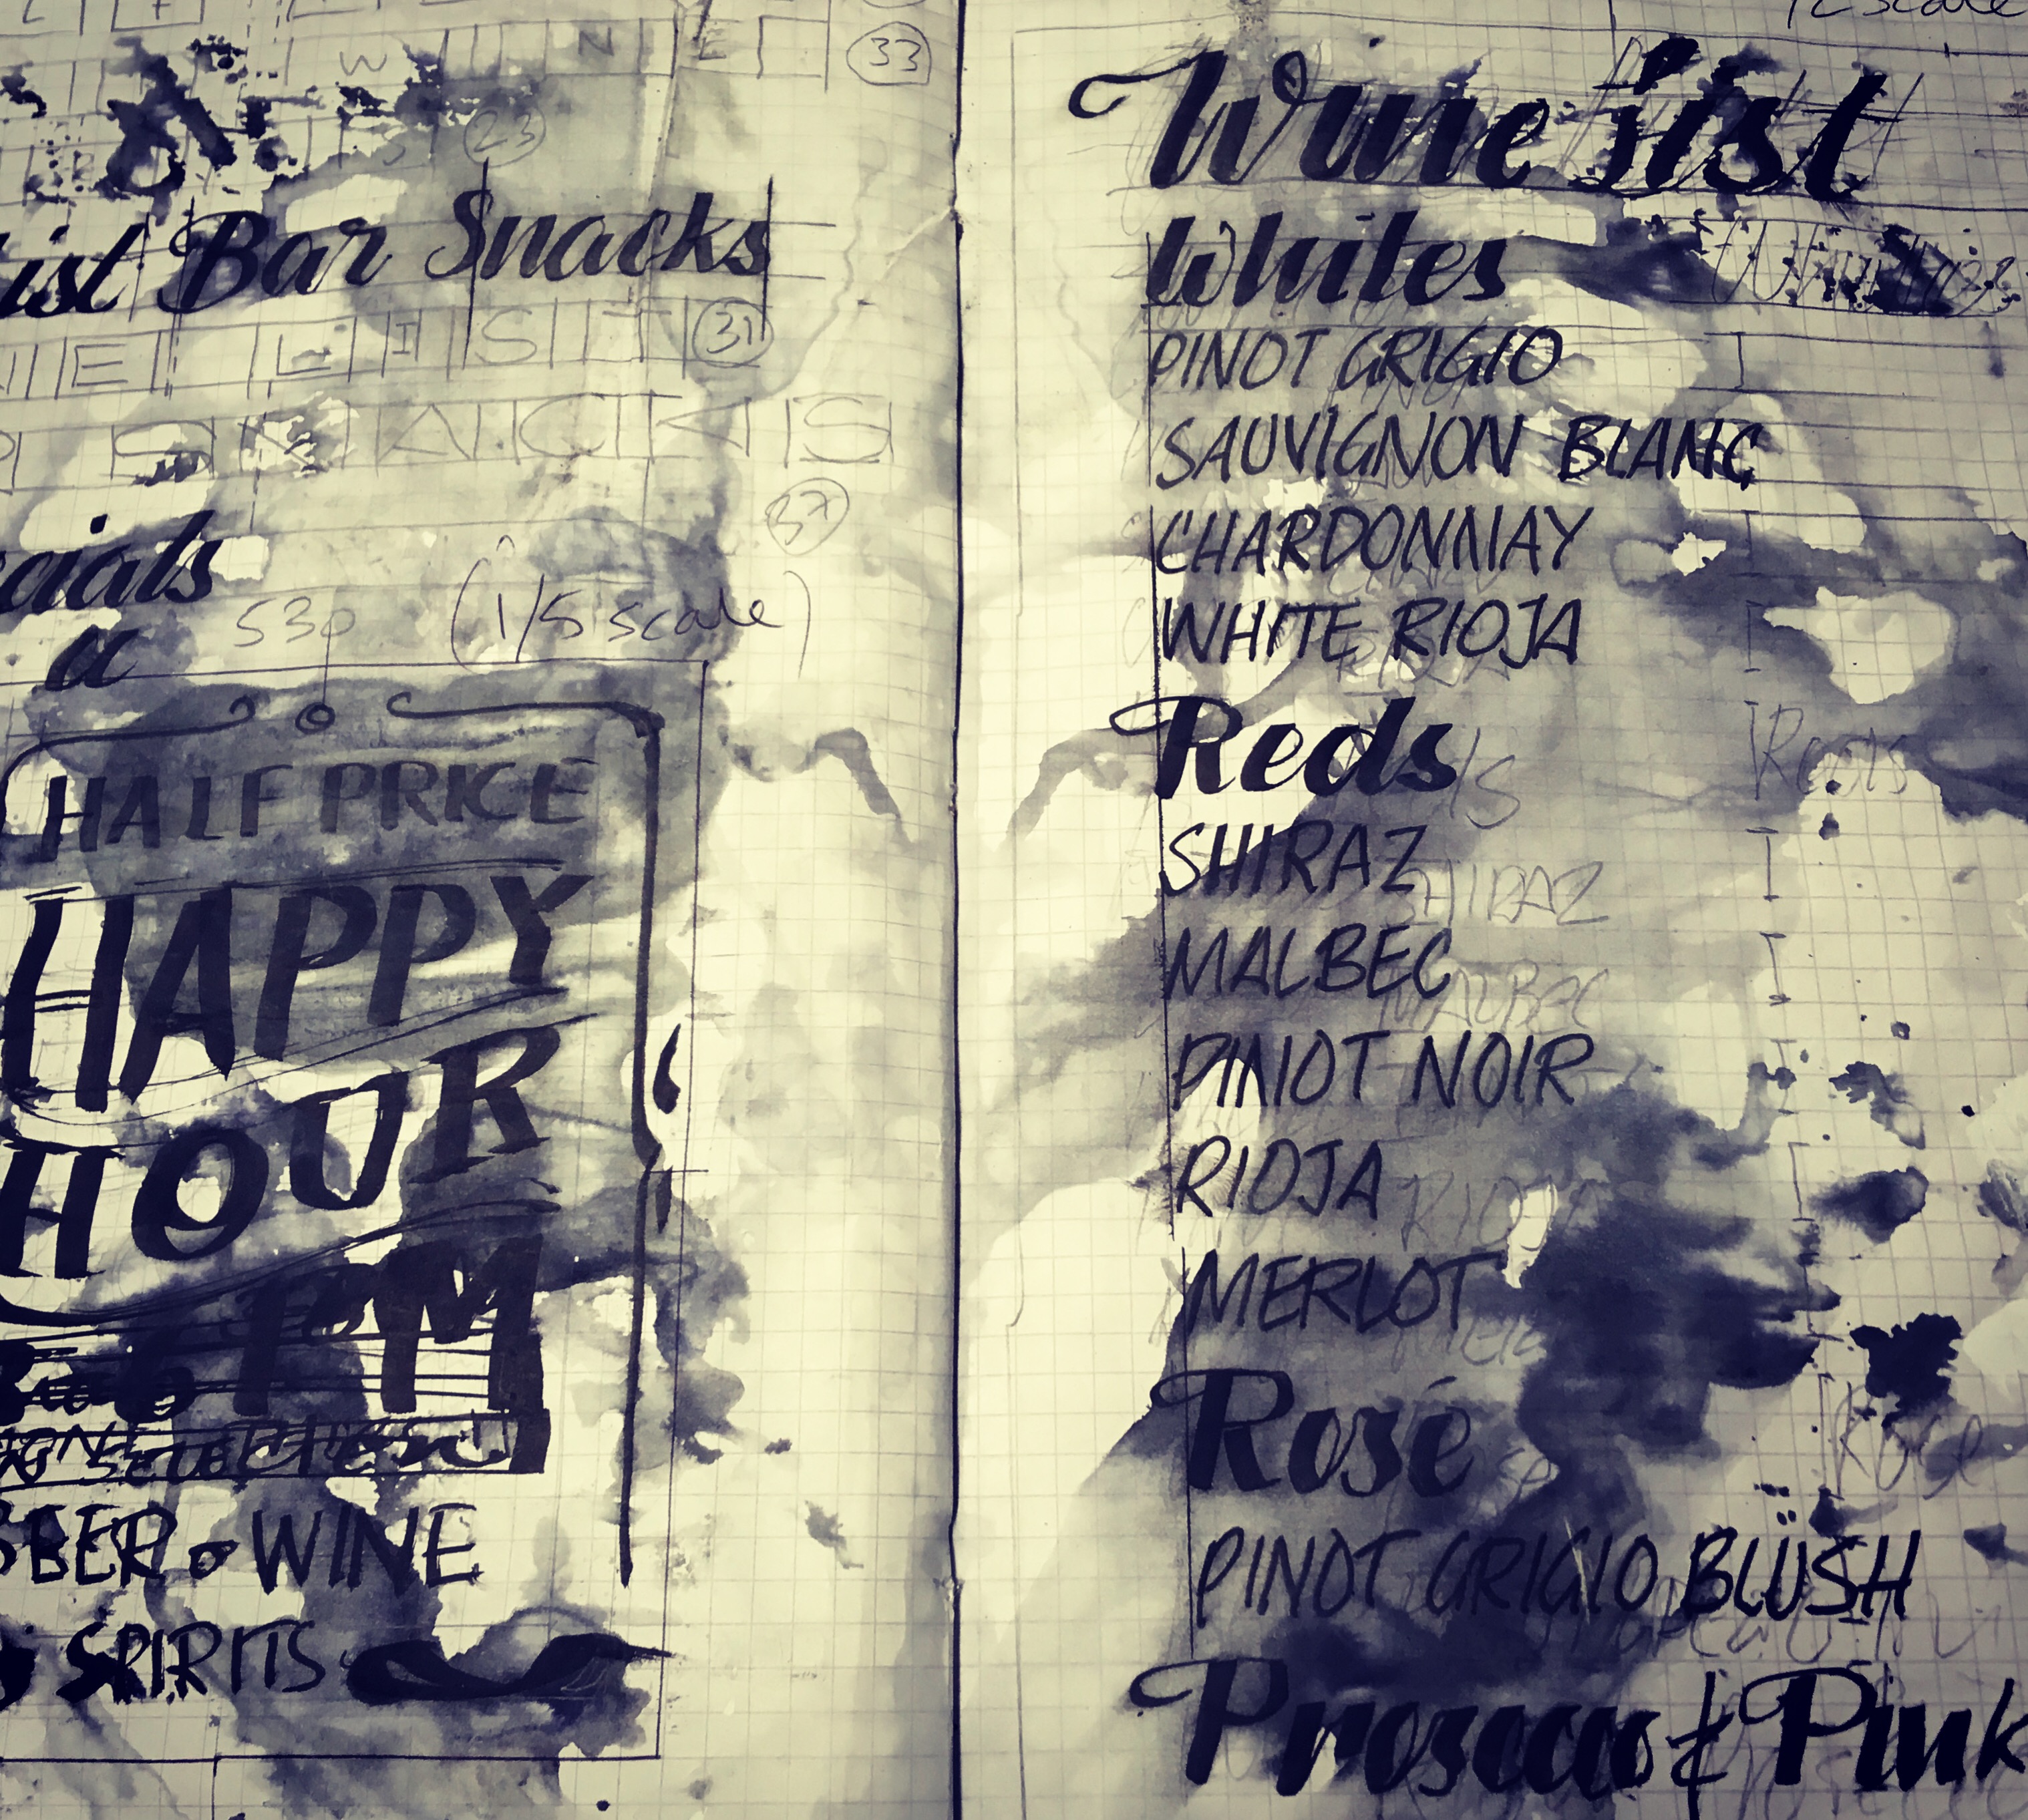 W I N E
33
23
ist Bar Snacks
N E L I S T 31
S N A C K S
37
cials
530 (1/5 scale)
HALF PRICE
HAPPY
HOUR
PM
BEER & WINE
SPIRITS
1/2 scale
Wine list
Whites
PINOT GRIGIO
SAUVIGNON BLANC
CHARDONNAY
WHITE RIOJA
Reds Reds
SHIRAZ SHIRAZ
MALBEC MALBEC
PINIOT NOIR
RIOJA RIOJA
MERLOT
Rosé Rose
PINOT GRIGIO BLÜSH
Prosecco & Pink